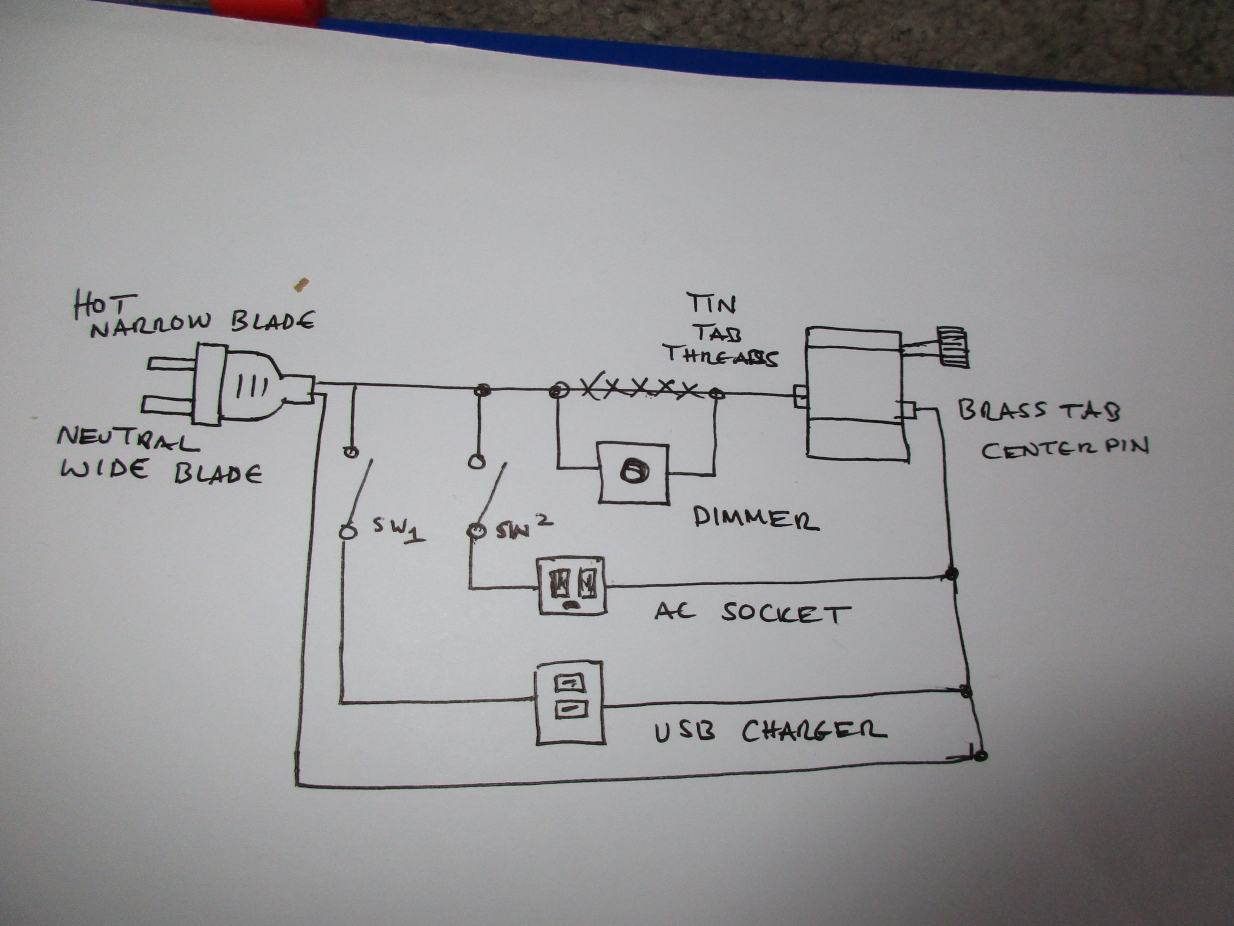 HOT
NARROW BLADE
NEUTRAL
WIDE BLADE
TIN
TAB
THREADS
BRASS TAB
CENTER PIN
SW1
SW2
DIMMER
AC SOCKET
USB CHARGER